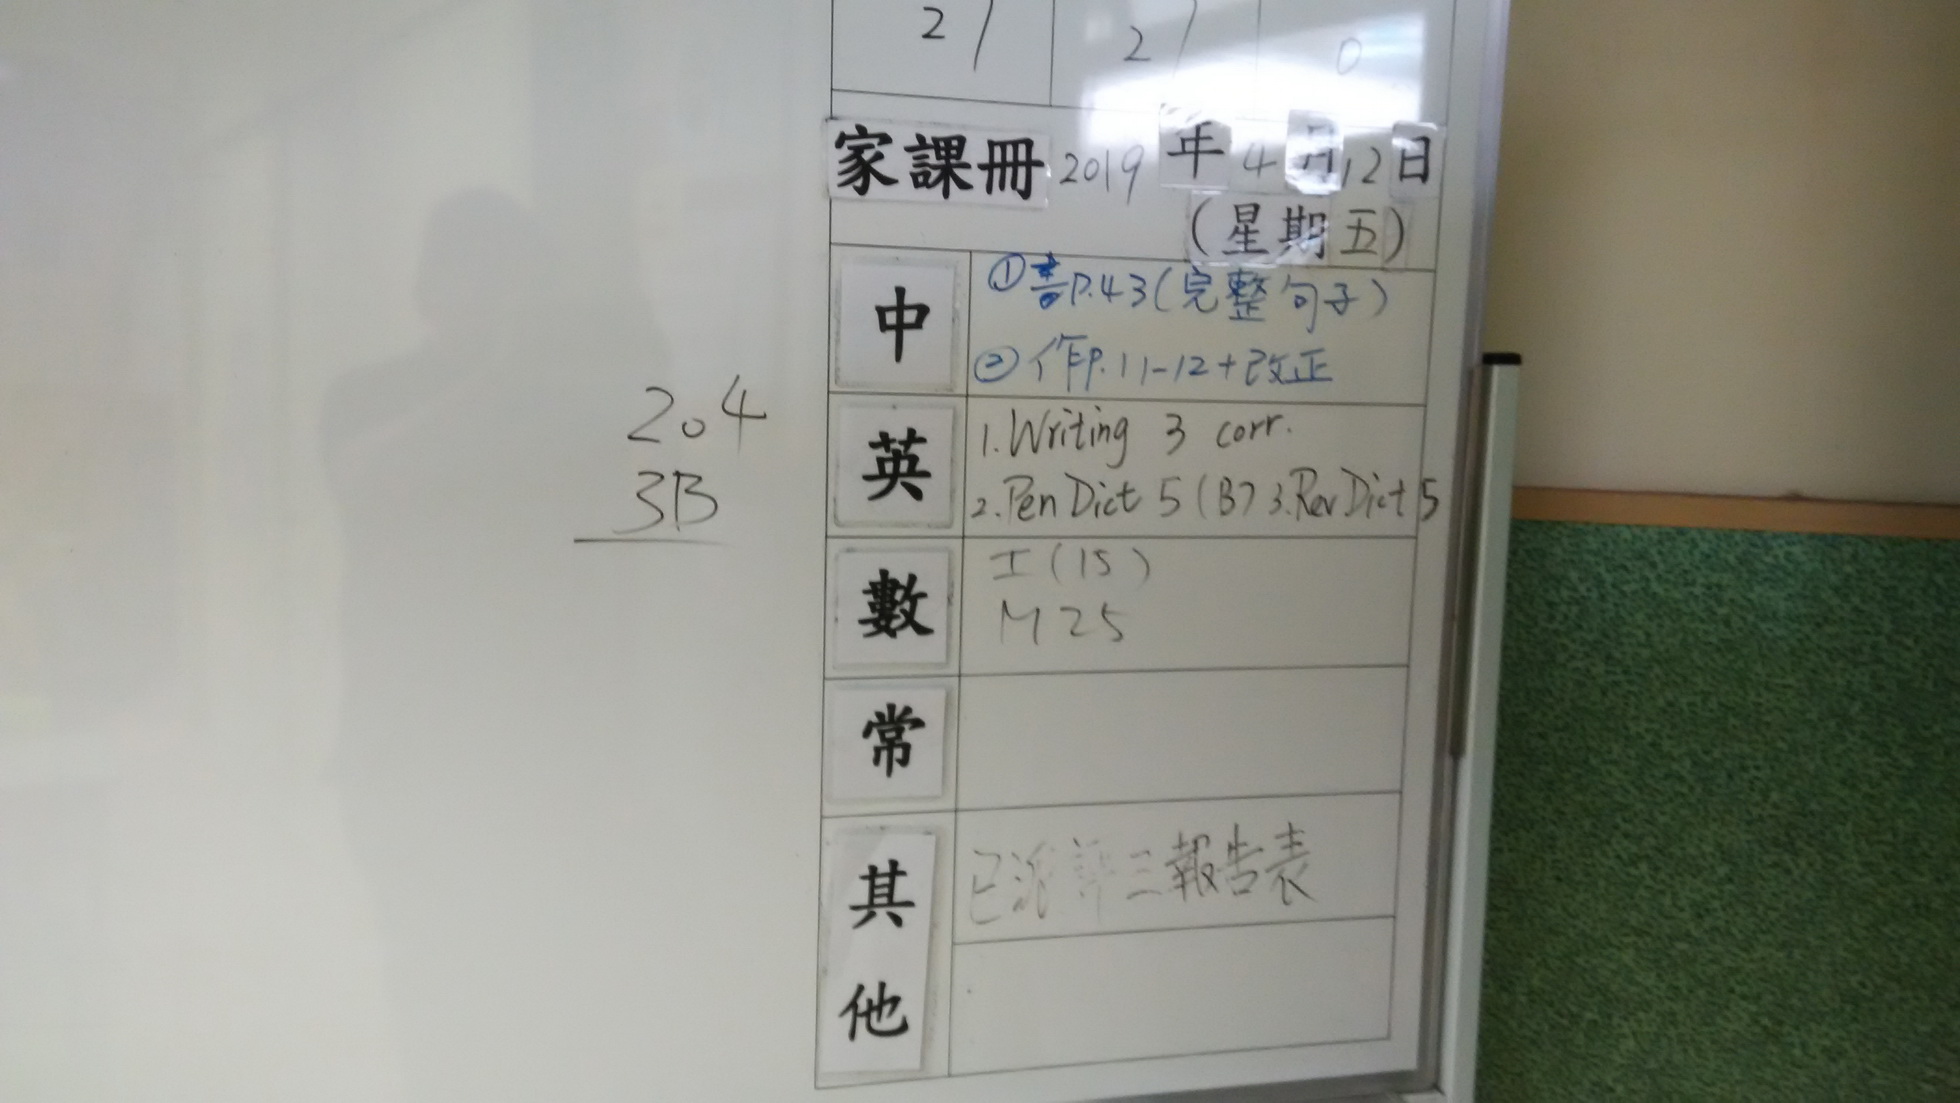 27 27 0
家課冊 2019年4月12日
(星期五)
中
①書P.43(完整句子)
②作P.11-12+改正
204
3B
英
1.Writing 3 corr.
2.Pen Dict 5 (B7) 3.Rev Dict 5
數
工(15)
M25
常
其他
已派評三報告表